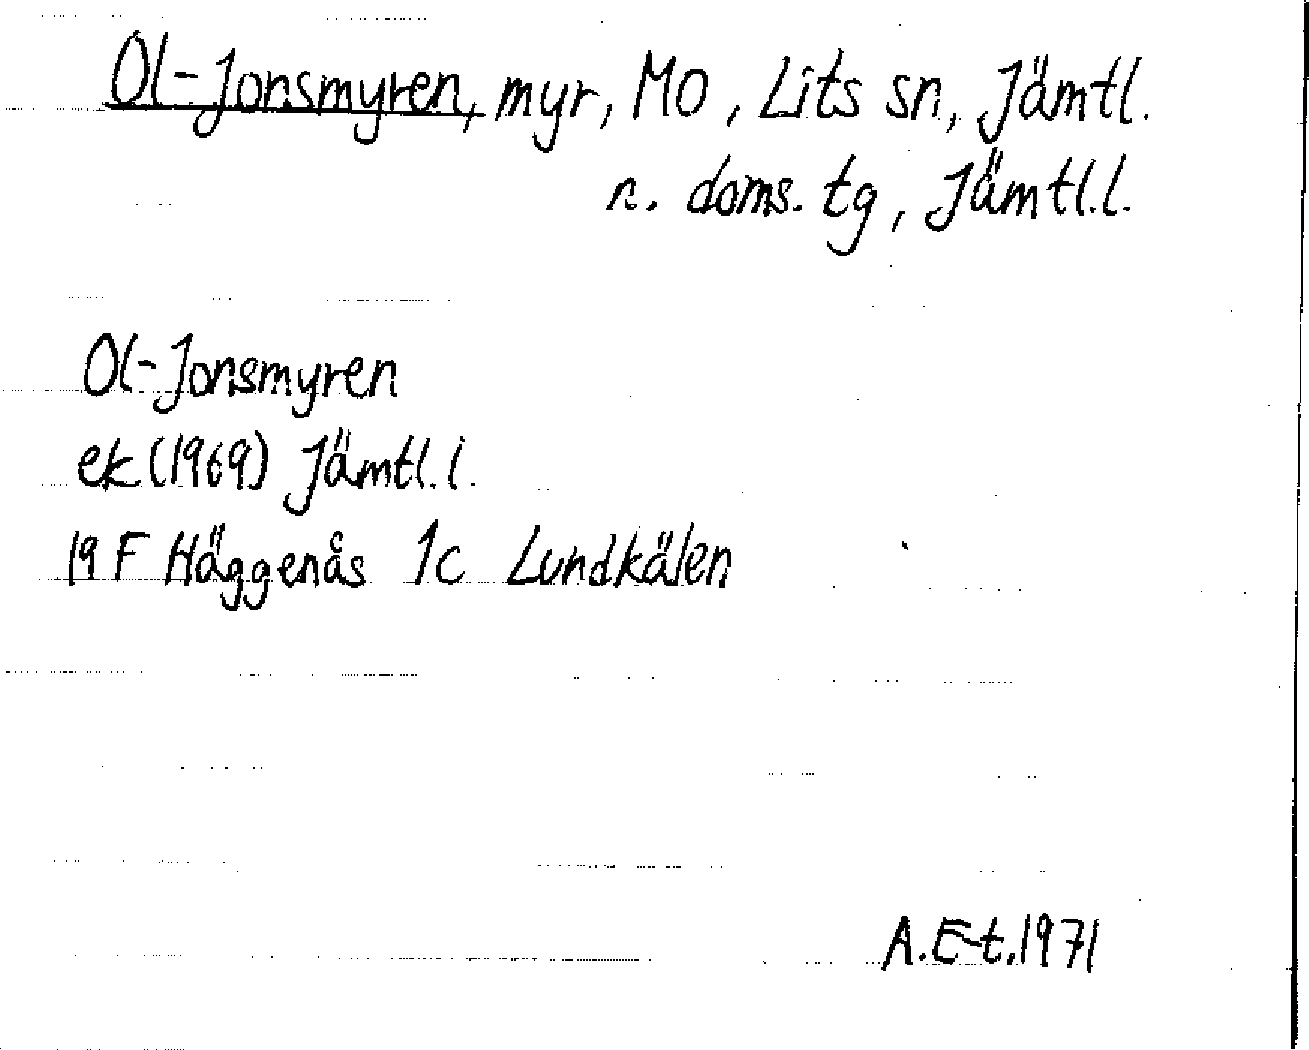 Ol-Jonsmyren, myr, Mo, Lits sn, Jämtl.
n. doms. tg, Jämtl.l.
Ol-Jonsmyren
ek (1969) Jämtl.l.
19 F Häggenås 1c Lundkälen
A.E-t.1971